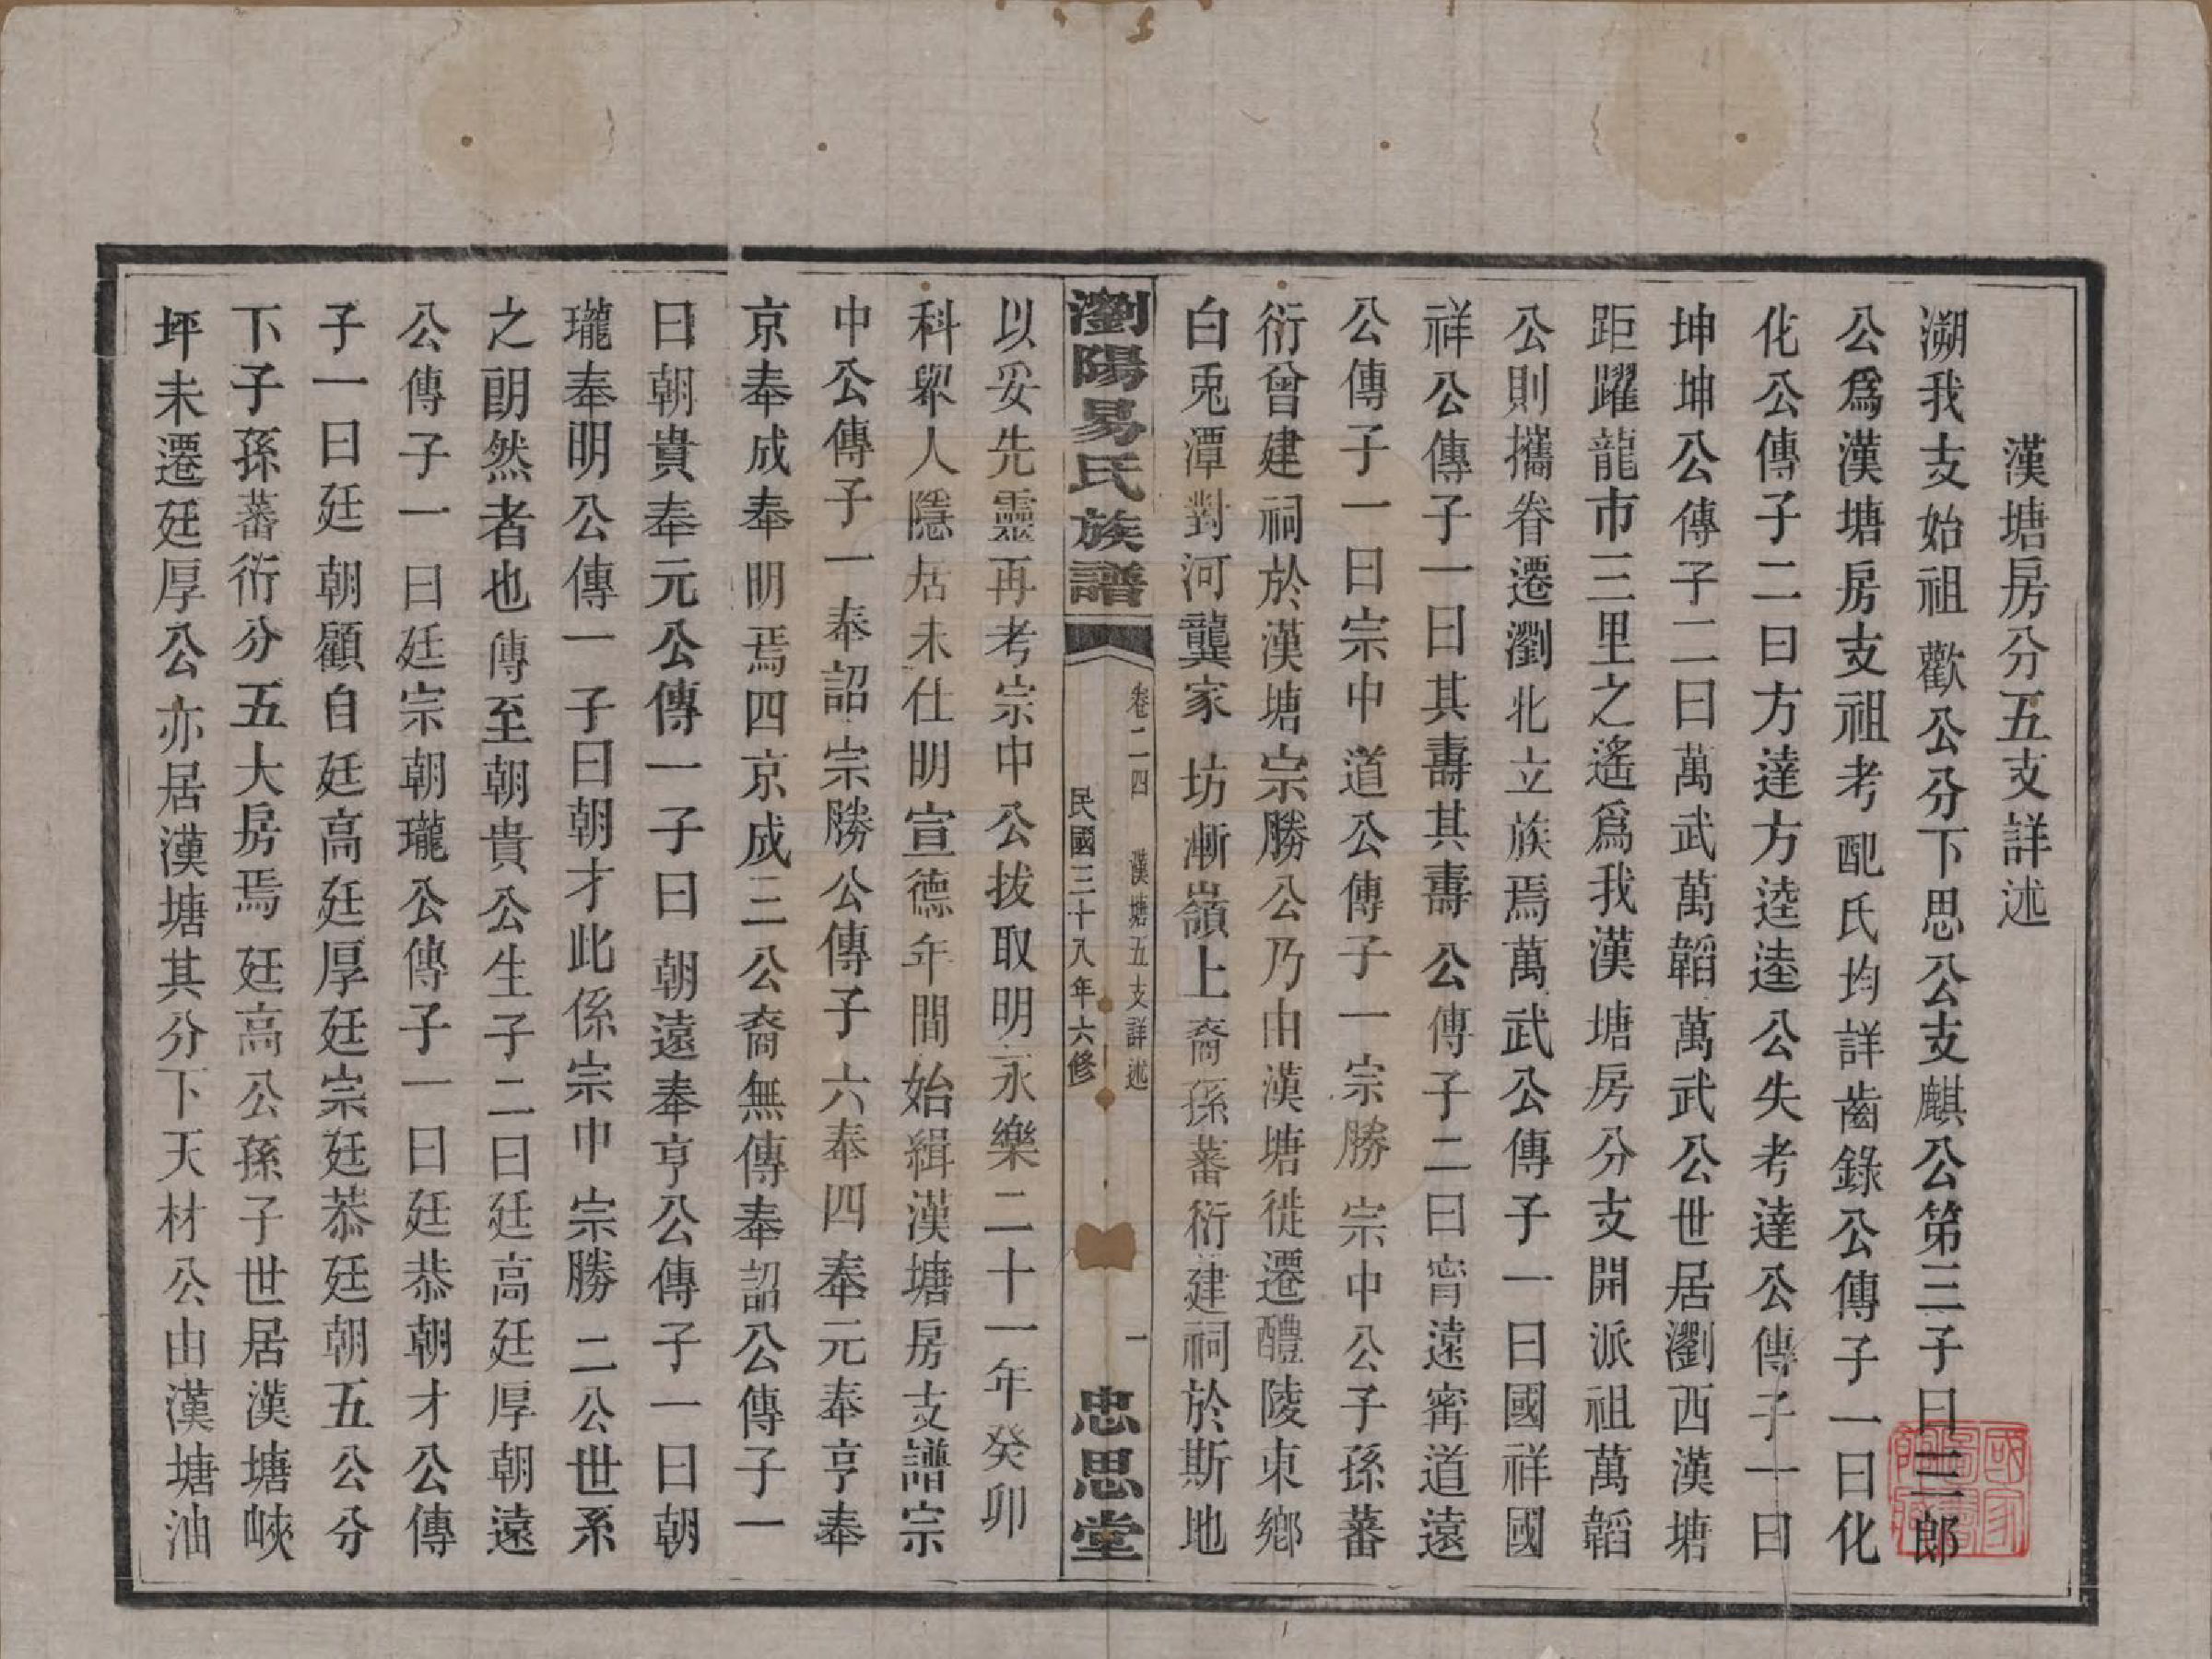 漢塘房分五支詳述
溯我支始祖歡公分下思公支麒公第三子曰三郎
公爲漢塘房支祖考配氏均詳齒錄公傳子一曰化
化公傳子二曰方達方逵逵公失考達公傳子一曰
坤坤公傳子二曰萬武萬韜萬武公世居瀏西漢塘
距躍龍市三里之遙爲我漢塘房分支開派祖萬韜
公則攜眷遷瀏北立族焉萬武公傳子一曰國祥國
祥公傳子一曰其壽其壽公傳子二曰甯遠甯道遠
公傳子一曰宗中道公傳子一宗勝宗中公子孫蕃
衍曾建祠於漢塘宗勝公乃由漢塘徙遷醴陵東鄉
白兎潭對河龔家坊漸嶺上裔孫蕃衍建祠於斯地
瀏陽易氏族譜
卷二四 漢塘五支詳述
民國三十八年六修
一
忠思堂
以妥先靈再考宗中公拔取明永樂二十一年癸卯
科舉人隱居未仕明宣德年間始緝漢塘房支譜宗
中公傳子一奉詔宗勝公傳子六奉四奉元奉亨奉
京奉成奉明焉四京成三公裔無傳奉詔公傳子一
曰朝貴奉元公傳一子曰朝遠奉亨公傳子一曰朝
瓏奉明公傳一子曰朝才此係宗中宗勝二公世系
之朗然者也傳至朝貴公生子二曰廷高廷厚朝遠
公傳子一曰廷宗朝瓏公傳子一曰廷恭朝才公傳
子一曰廷朝顧自廷高廷厚廷宗廷恭廷朝五公分
下子孫蕃衍分五大房焉廷高公孫子世居漢塘峽
坪未遷廷厚公亦居漢塘其分下天材公由漢塘油
國家圖書館藏